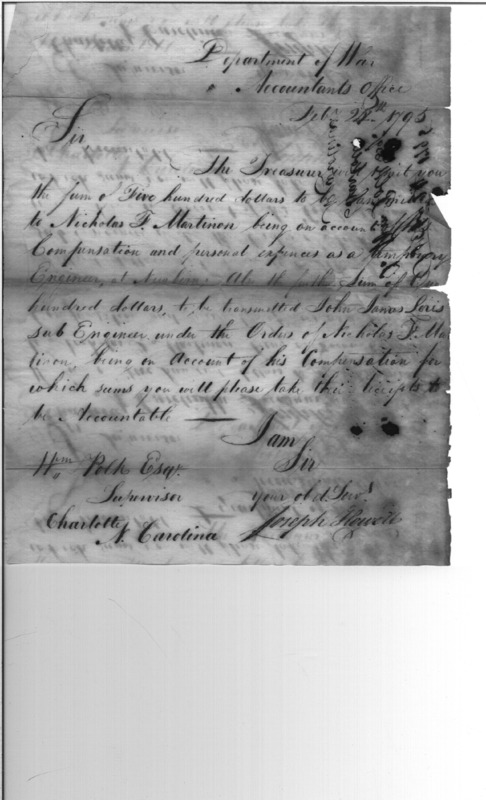 Department of War
Accountants Office
Feby 24th 1795
Sir
The Treasurer will remit you
the sum of Five hundred dollars to be transmitted
to Nicholas F. Martinon being on account of his
Compensation and personal expences as a temporary
Engineer, at Also the further Sum of
hundred dollars, to be transmitted John James Loris
sub Engineer under the Orders of Nicholas F. Mar
tinon, being on Account of his Compensation for
which sums you will please take their receipts to
be Accountable —
I am
Sir
Wm Polk Esqr. your obd. Servt
Supervisor Joseph Howell
Charlotte
N. Carolina